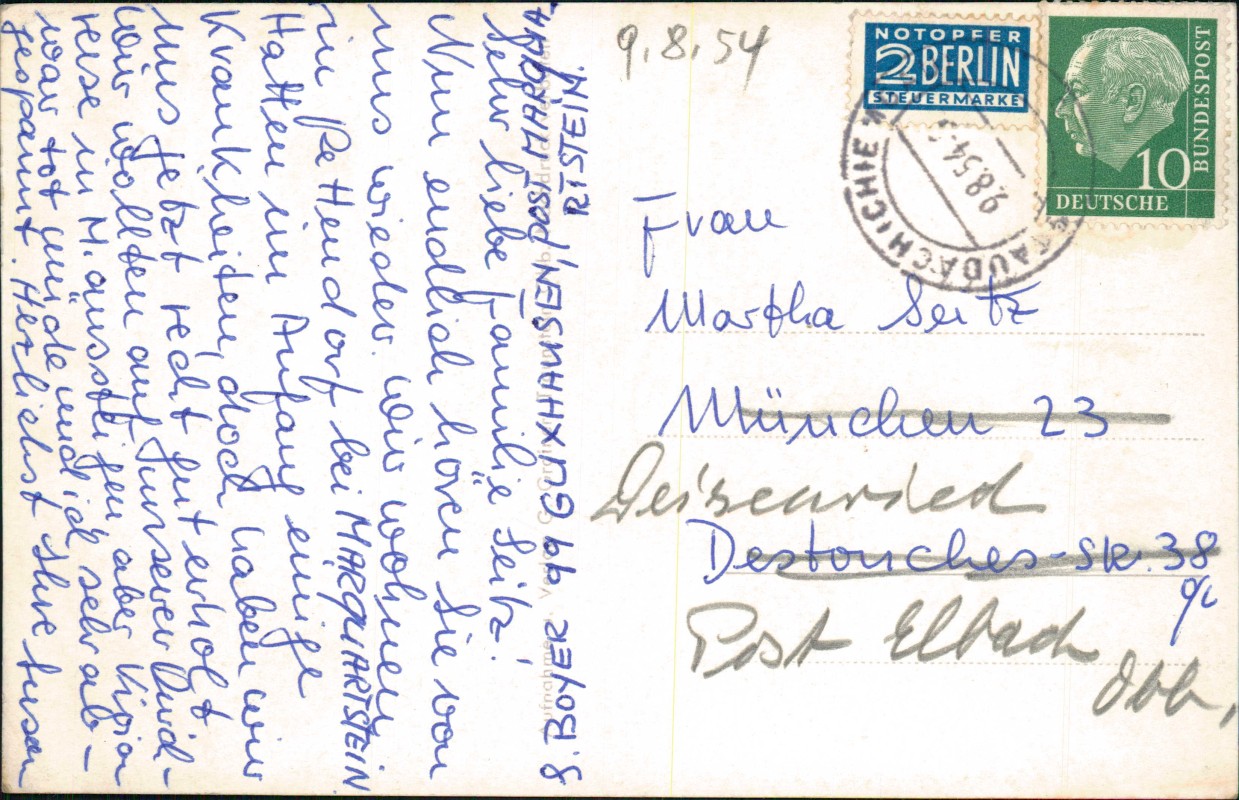 9.8.54
NOTOPFER
2 BERLIN
STEUERMARKE
BUNDESPOST
10
DEUTSCHE
9.8.54
Frau
Martha Seitz
München 23
Deisenried
Destouches-Str. 38
Post Elbach
Obb.
8. BOYER bei GUXHAUSEN, POST
RISTEIN.
Sehr liebe Familie Seitz!
Nun endlich hören Sie von
uns wieder. Wir wohnen
in Pettendorf bei MARQUARTSTEIN
Hatten im Anfang einige
Krankheiten, doch haben wir
uns jetzt recht gut erholt
Wir wollten auf unserer Durch-
reise in M. aussteigen aber
war tot müde und ich sehr ab-
gespannt. Herzlichst Ihre